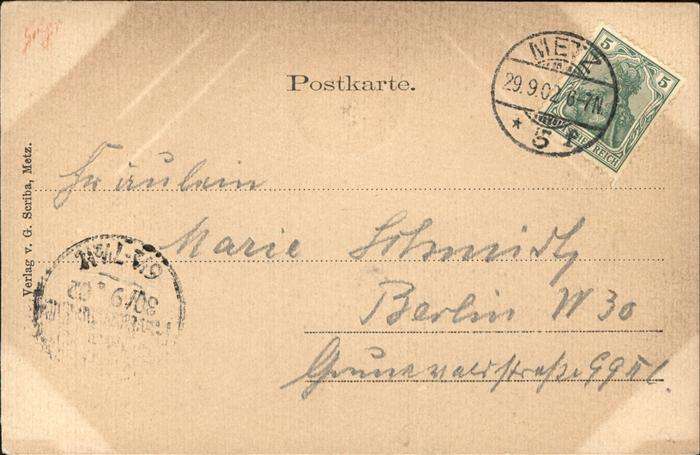 Postkarte.
METZ
29.9.02 6-7N.
* 5 f
5 5
REICH
Verlag v. G. Scriba, Metz.
Fräulein
Marie Schmidt
Berlin W 30
Grunewaldstraße 99 II l.
30/9 02